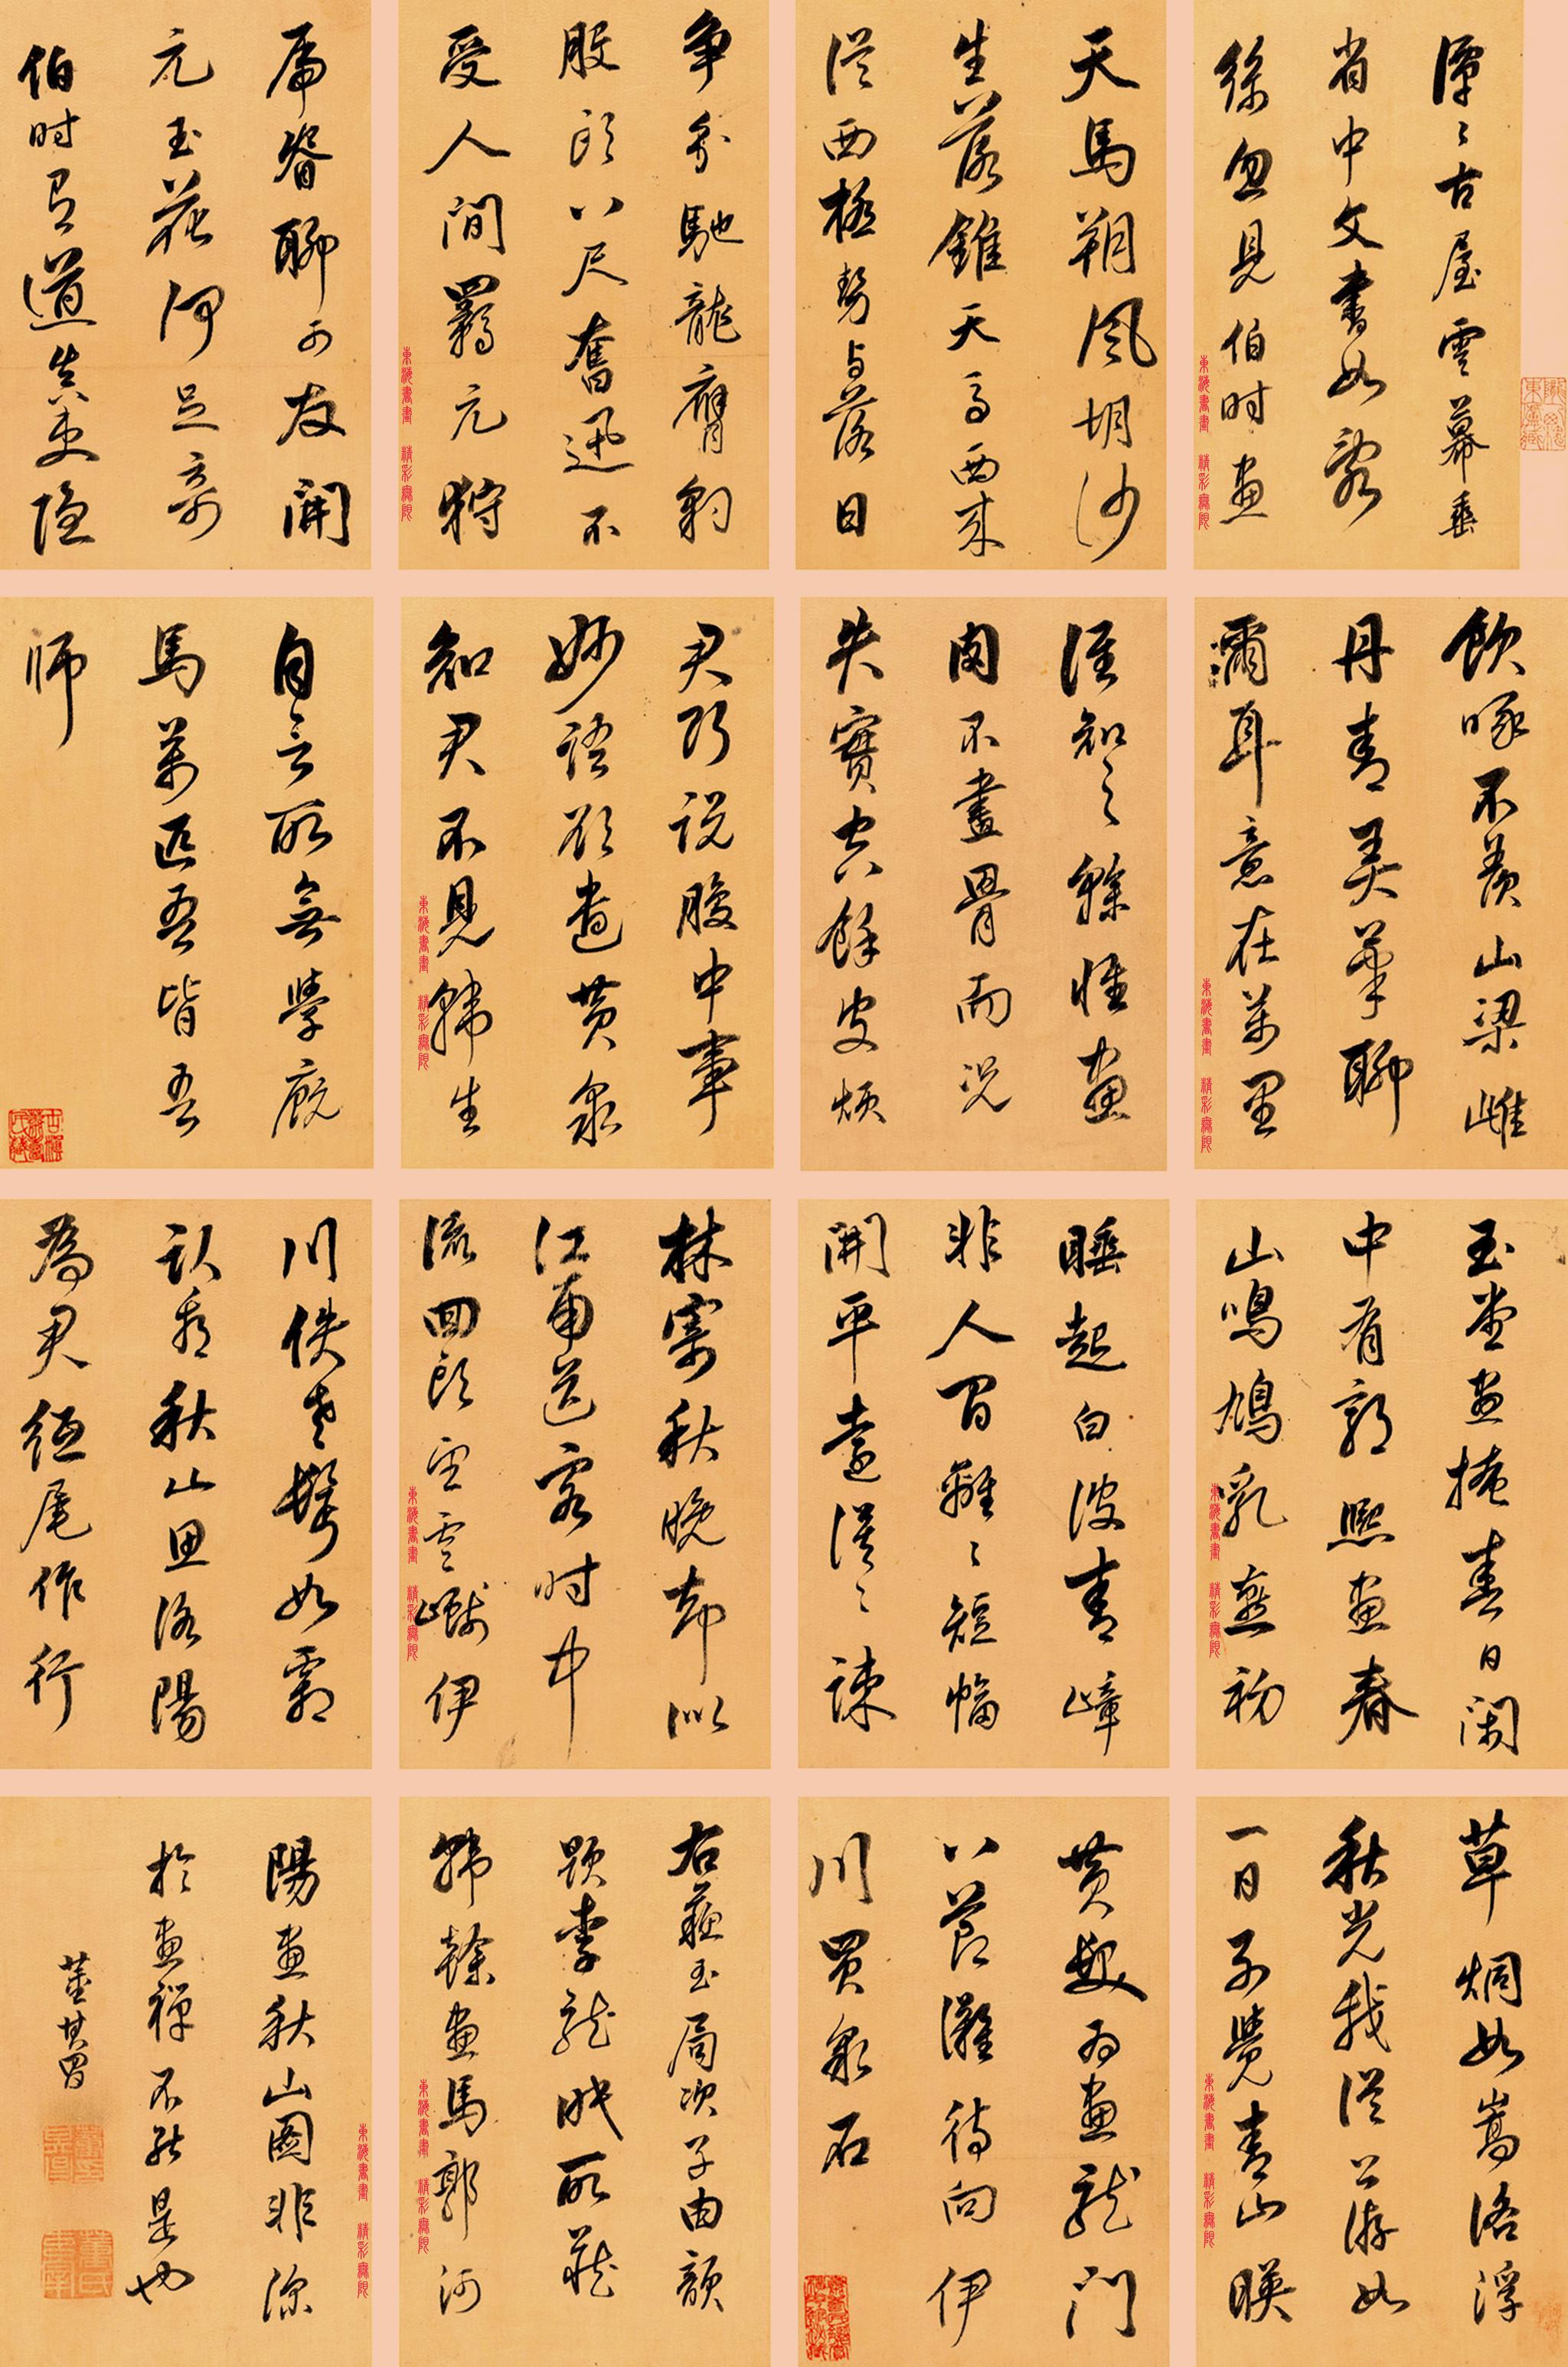 潭〻古屋雲幕垂
省中文書如亂
絲忽見伯时画
天馬朔風胡沙
生落錐天馬西来
從西極勢与落日
争分馳龍膺豹
股頭八尺奮迅不
受人間羈元狩
虎脊聊可友開
元玉花何足奇
伯时有道真吏隱
飲啄不羨山梁雌
丹青弄筆聊
爾耳意在萬里
誰知之幹惟畫
肉不畫骨而况
失實空餘皮煩
君巧説腹中事
妙語欲遣黄泉
知君不見韓生
自言所無學廐
馬萬匹吾皆吾
師
玉堂画掩春日閑
中有郭熙画春
山鳴鳩乳燕初
睡起白波青嶂
非人間離〻短幅
開平遠漠〻疎
林寄秋晚却似
江南送客时中
流回頭望雲巘伊
川佚老鬢如霜
臥看秋山思洛陽
為君紙尾作行
草烱如嵩洛浮
秋光我從公游如
一日不覺青山映
黄髮为画龍門
八節灘待向伊
川買泉石
右蘇玉局次子由韻
題李龍眠所藏
韓幹画馬郭河
陽画秋山圖非深
於画禪不能是也
董其昌